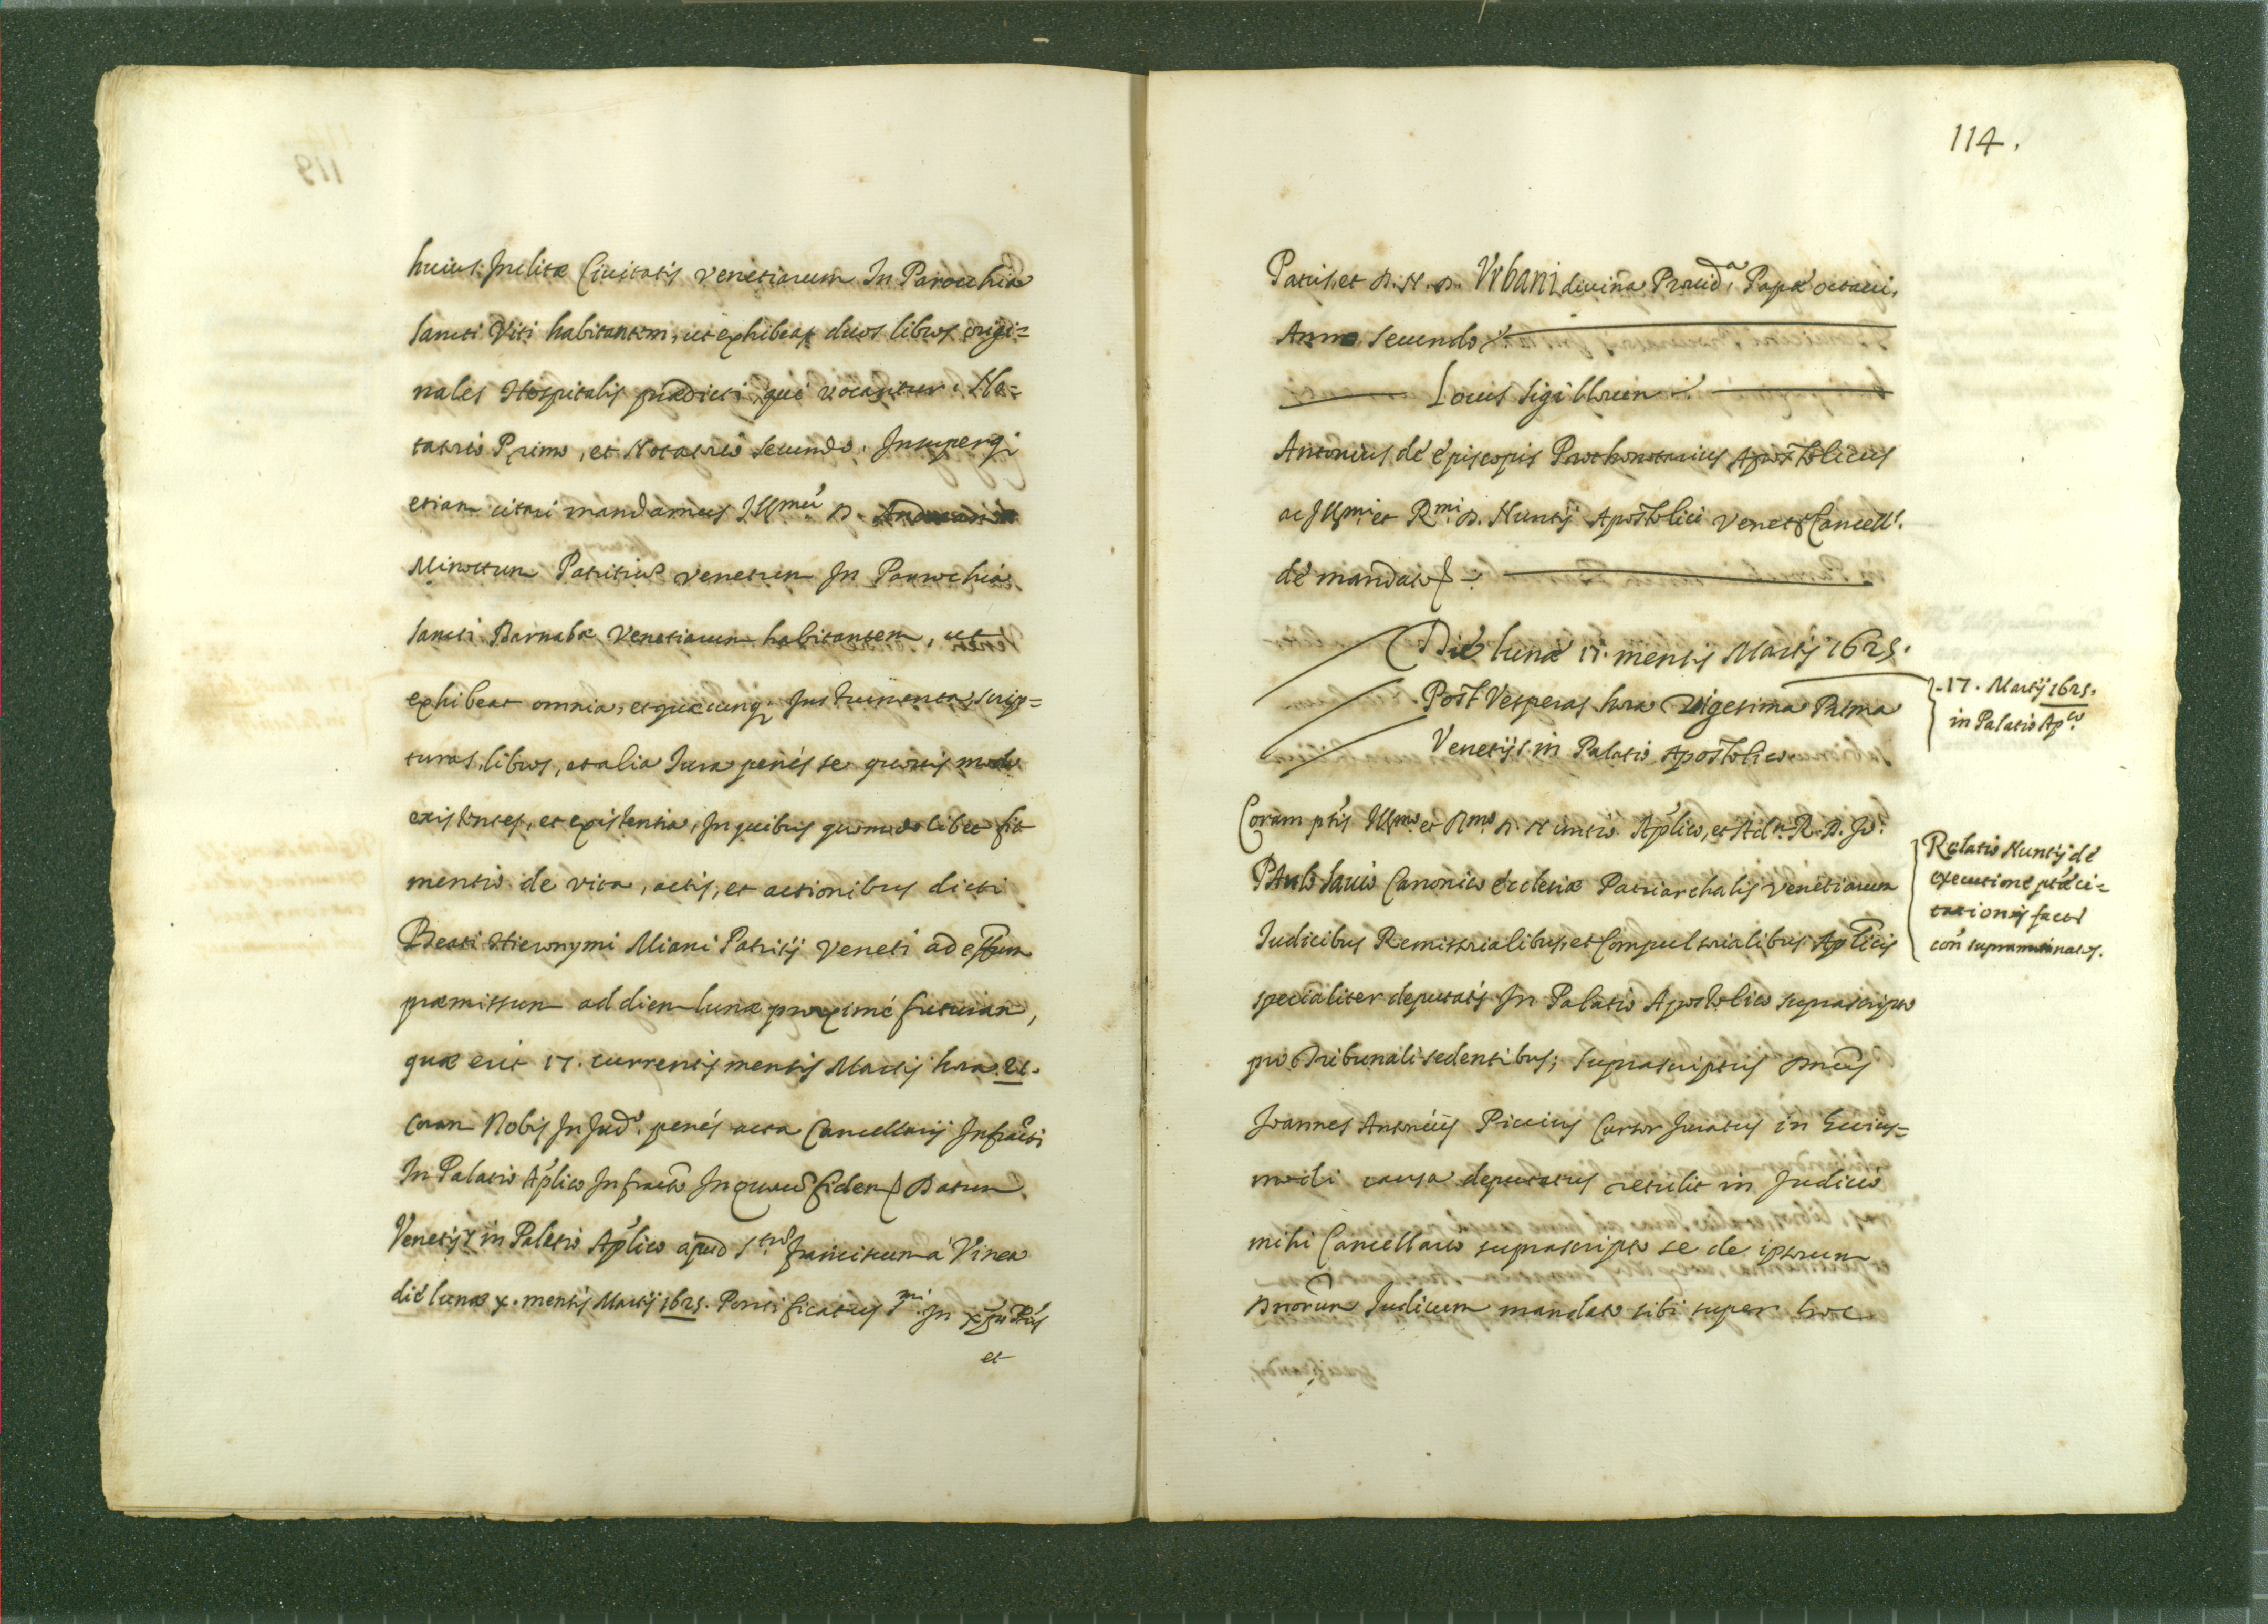 huius Inclitæ Ciuitatis Venetiarum In Parochia
Sancti Viti habitantem, ut exhibeat duos libros origi=
nales Hospitalis prædicti, qui vocantur: No=
tatorio Primo, et Notatorio Secundo. Insuperq;
etiam citari mandamus Ill.mũ D. Andream
Minottum Patritiũ Venetum In Parochia
Sancti Barnabæ Venetiarum habitantem, ut
exhibeat omnia, et quæcunq; Instrumenta, scrip=
turas, libros, et alia Iura penés se quouis modo
existentes, et existentia, In quibus quomodolibet fit
mentio de vita, actis, et actionibus dicti
Beati Hieronymi Miani Patritij Veneti ad effectum
præmissum ad diem lunæ proximé futuram,
quæ erit 17. currentis mensis Martij hora 21.
Coram Nobis In Jud.o penés acta Cancellarij Infracti
In Palatio Aplico Infracto In quorũ fidem Datum
Venetijs in Palatio Aplico apud S.tum Franciscum á Vinea
dié lunæ x. mensis Martij 1625. Pontificatus S.mi In xpo Pris
et
114.
Patris, et D. N. D. Vrbani diuina Prouid.a Papæ octaui,
Anno secundo
Locus Sigillorum
Antonius dé épiscopis Prothonotarius Apostolicus
ac Ill.mi et R.mi D. Nuntij Apostolici Venet. Cancell.s
dé mandato
Dié lunæ 17. mensis Martij 1625.
Post Vesperas hora Vigesima Prima
Venetijs in Palatio Apostolico
17. Martij 1625.
in Palatio Ap.co
Coram ptis Ill.mo et R.mo D. Nuntio Aplico, et Adm. R. D. Jo:
Paulo Sauio Canonico écclesiæ Patriarchalis Venetiarum
Iudicibus Remissorialibus, et Compulsorialibus Aplicis
specialiter deputatis In Palatio Apostolico suprascripto
pro Tribunali sedentibus; suprascriptus Dnus
Joannes Antonius Piccius Cursor Juratus in huius=
modi causa deputatus retulit in Judicio
mihi Cancellario suprascripto se de ipsorum
Dnorum Judicum mandato sibi super hoc
Relatio Nuntij dé
executione ptæ ci=
tationis factæ
con supranominatos.